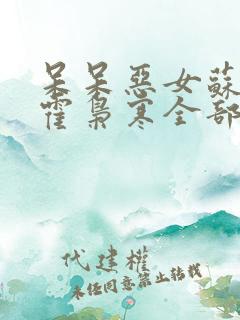 呆呆惡女蘇
霍梟寒全部
代建權
未经同意禁止转载